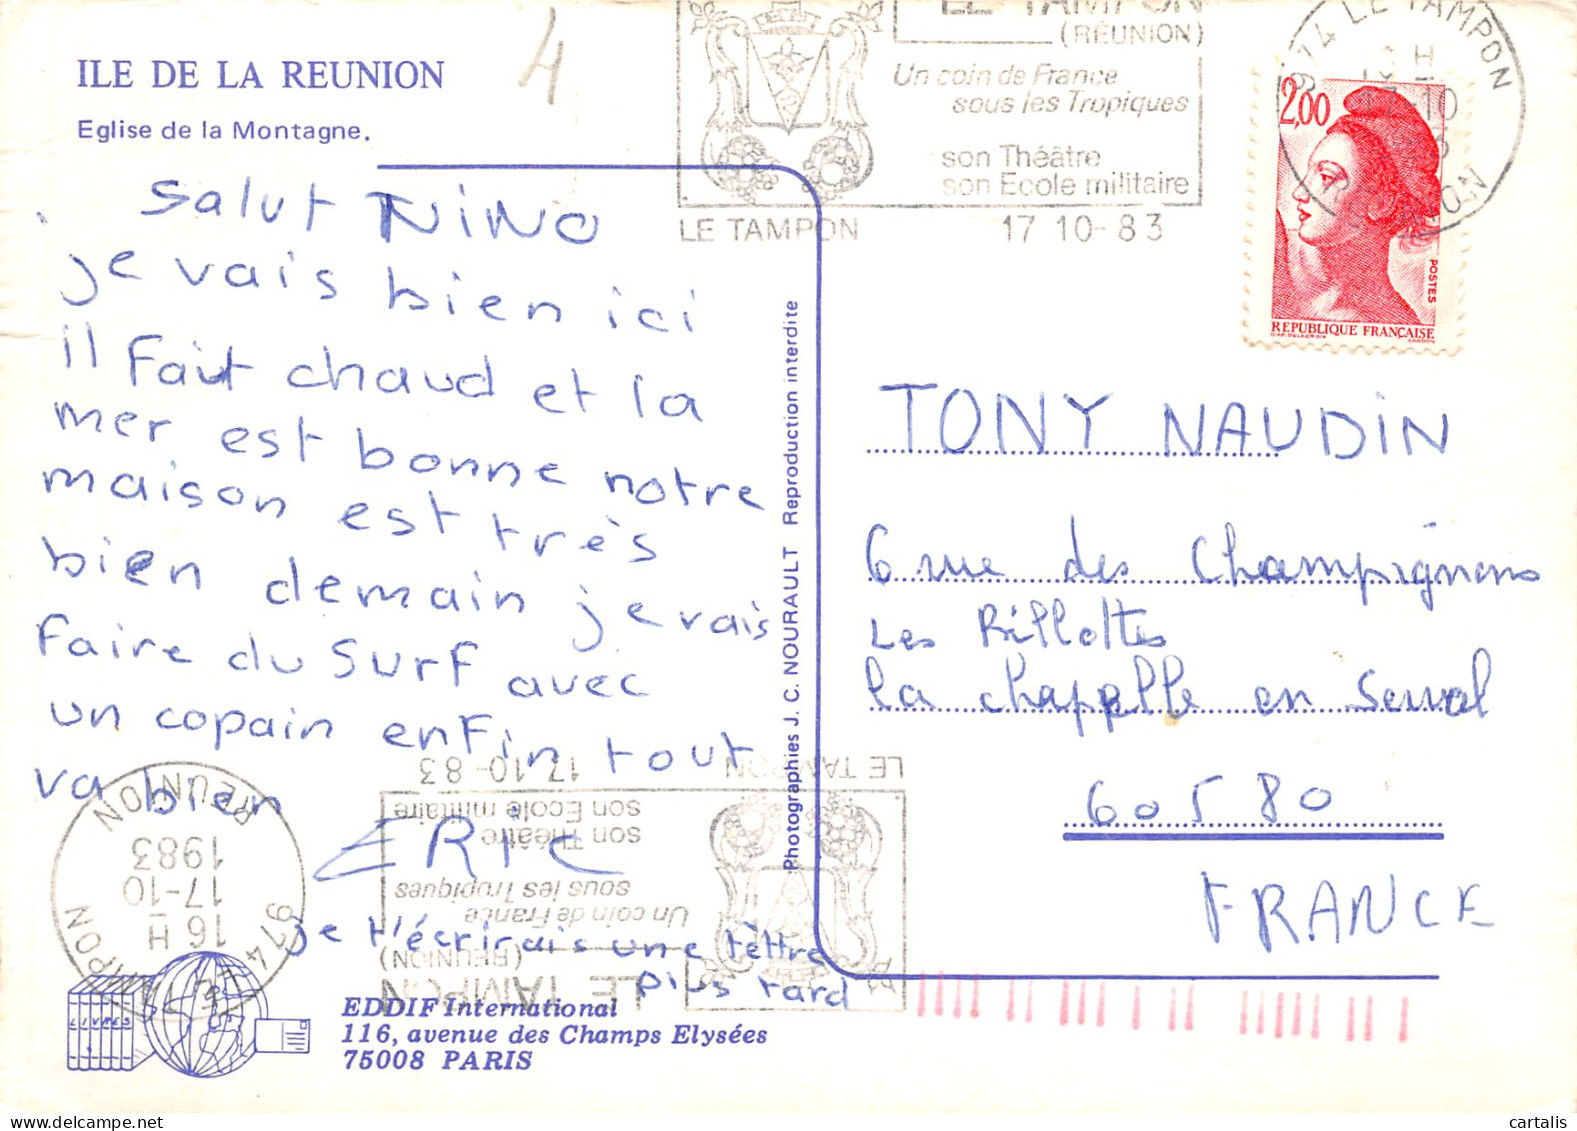 ILE DE LA REUNION
Eglise de la Montagne.
4
LE TAMPON
(RÉUNION)
Un coin de France
sous les Tropiques
son Théâtre
son Ecole militaire
LE TAMPON 17 10-83
974 LE TAMPON
17-10
RÉUNION
2,00
POSTES
REPUBLIQUE FRANÇAISE
Salut NiNO
je vais bien ici
il Fait chaud et la
mer est bonne notre
maison est très
bien demain je vais
Faire du surf avec
un copain enfin tout
va bien
ERIC
je t'écrirais une lettre
plus tard
Photographies J. C. NOURAULT Reproduction interdite
TONY NAUDiN
6 rue des Champignons
Les Rillottes
la chapelle en Serval
60580
FRANCE
LE TAMPON 17-10-83
LE TAMPON
(RÉUNION)
Un coin de France
sous les Tropiques
son Théâtre
son Ecole militaire
974 LE TAMPON
16 H
17-10
1983
RÉUNION
LIVRES
EDDIF International
116, avenue des Champs Elysées
75008 PARIS
cartalis